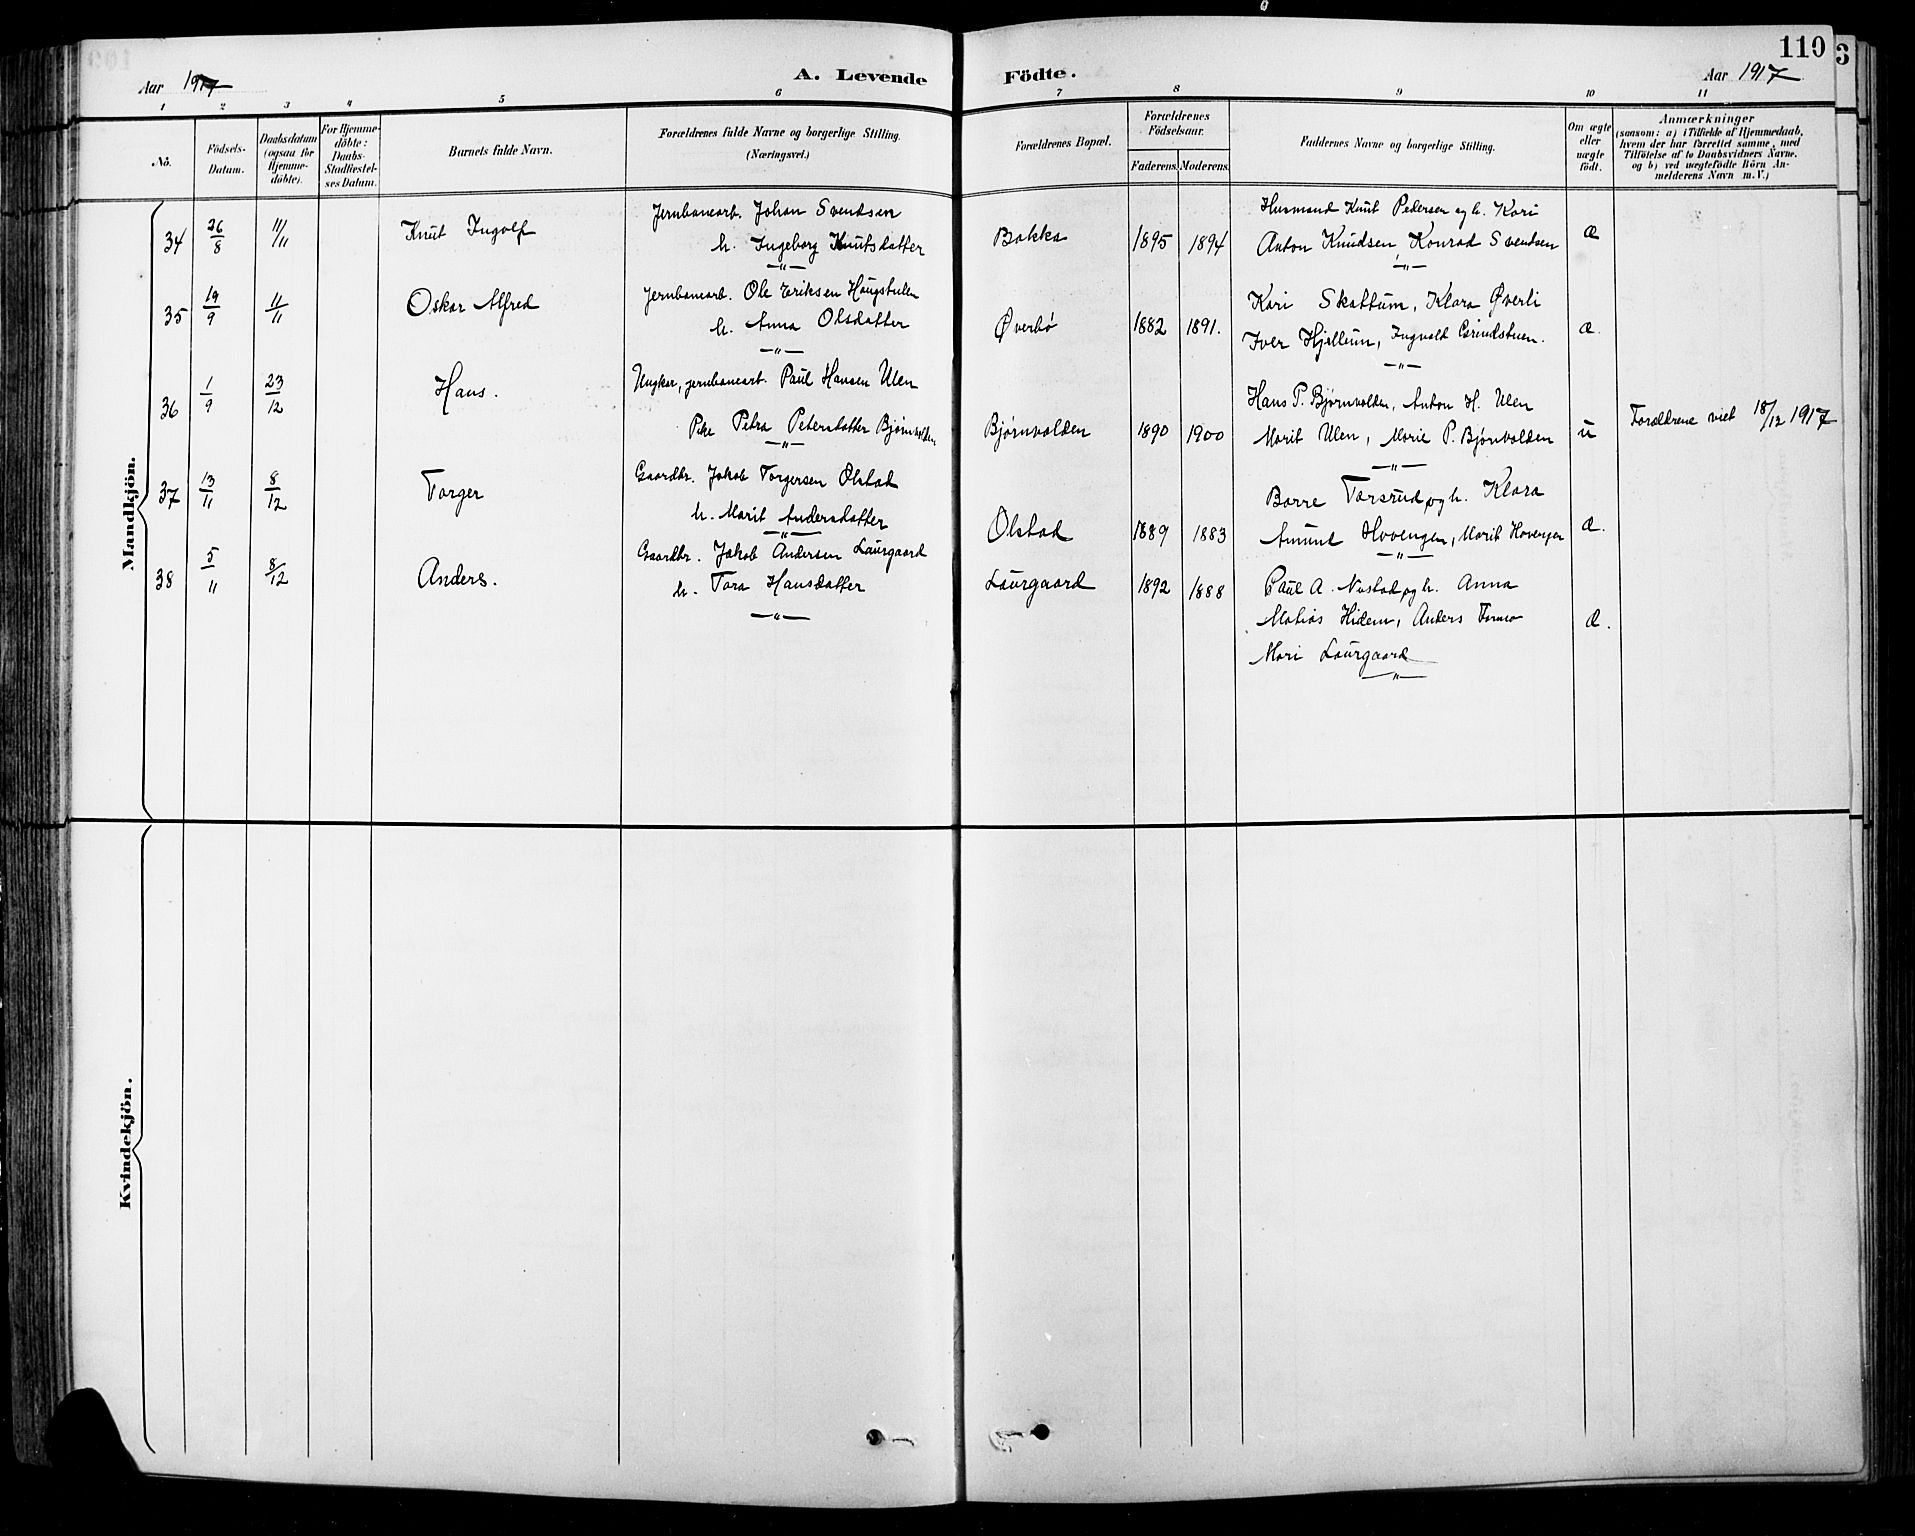 110
3
Aar 1917
A. Levende Födte.
Aar 1917
1 2 3 4 5 6 7 8 9 10 11
No.
Födsels-Datum.
Daabsdatum (ogsaa for Hjemme-döbte).
For Hjemme-döbte: Daabs-Stadfæstel-ses Datum.
Barnets fulde Navn.
Forældrenes fulde Navne og borgerlige Stilling.
(Næringsvei.)
Forældrenes Bopæl.
Forældrenes Födselsaar.
Faderens. Moderens.
Faddernes Navne og borgerlige Stilling.
Om ægte eller uægte födt.
Anmærkninger
(saasom: a) i Tilfælde af Hjemmedaab,
hvem der har forrettet samme, med
Tilföielse af to Daabsvidners Navne.
og b) ved uægtefödte Börn An-
melderens Navn m. V.)
Mandkjön.
34 26/8 11/11 Knut Ingolf
Jernbanearb. Johan Svendsen
h. Ingeborg Knutsdatter
—"—
Bakke 1895 1894
Husmand Knut Pedersen og h. Kari
Anton Knudsen, Konrad Svendsen
—"—
æ
35 19/9 11/11 Oskar Alfred
Jernbanearb. Ole Eriksen Haugstulen
h. Anna Olsdatter
—"—
Øverbø 1882 1891.
Kari Skattum, Klara Øverli
Iver Hjellum, Ingvald
—"—
æ.
36 1/9 23/12 Hans.
Ungkar, jernbanearb. Paul Hansen Ulen
Pike Petra Petersdatter Bjørnvolden
—"—
Bjørnvolden 1890 1900
Hans P. Bjørnvolden, Anton H. Ulen
Marit Ulen, Marie P. Bjørnvolden
—"—
u
Forældrene viet 18/12 1917
37 13/11 8/12 Torger
Gaardbr. Jakob Torgersen Olstad
h. Marit Andersdatter
—"—
Olstad 1889 1883
Borre Torsrud og h. Klara
Amund Hovengen, Marit Hovengen
—"—
æ.
38 5/11 8/12 Anders.
Gaardbr. Jakob Andersen Laurgaard
h. Tora Hansdatter
—"—
Laurgaard 1892 1888
Paul A. Nustad og h. Anna
Matias Hidem, Anders Formo
Mari Laurgaard
—"—
æ.
Kvindekjön.